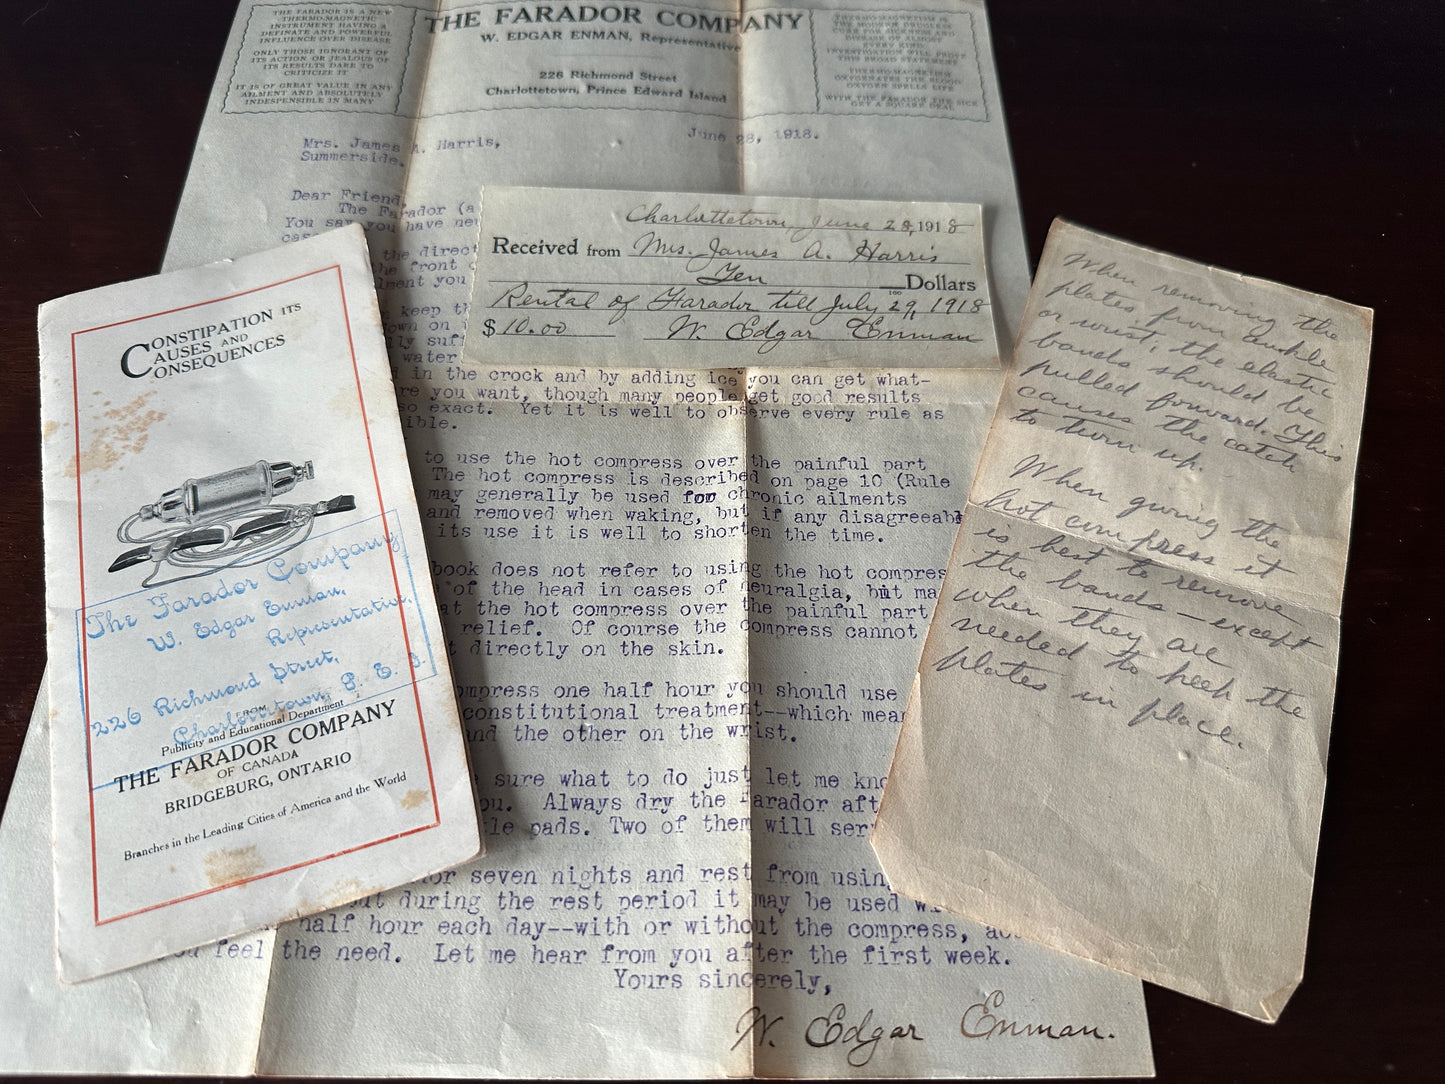 THE FARADOR IS A NEW
THERMO-MAGNETIC
INSTRUMENT HAVING A
DEFINATE AND POWERFUL
INFLUENCE OVER DISEASE
ONLY THOSE IGNORANT OF
ITS ACTION OR JEALOUS OF
ITS RESULTS DARE TO
CRITICIZE IT
IT IS OF GREAT VALUE IN ANY
AILMENT AND ABSOLUTELY
INDESPENSIBLE IN MANY
THE FARADOR COMPANY
W. EDGAR ENMAN, Representative
226 Richmond Street
Charlottetown, Prince Edward Island
THERMO-MAGNETISM IS
THE MODERN DRUGLESS
CURE FOR SICKNESS AND
DISEASE OF ALMOST
EVERY KIND.
INVESTIGATION WILL PROVE
THIS BROAD STATEMENT
THERMO-MAGNETISM
OXYGENATES THE BLOOD
OXYGEN SPELLS LIFE
WITH THE FARADOR THE SICK
GET A SQUARE DEAL
June 28, 1918.
Mrs. James A. Harris,
Summerside.
Dear Friend,
The Farador (a
You say you have
the direct
the front
you
keep th
own on
water
in the crock and by adding ice you can get what-
re you want, though many people get good results
so exact. Yet it is well to observe every rule as
ible.
to use the hot compress over the painful part
The hot compress is described on page 10 (Rule
may generally be used for chronic ailments
and removed when waking, but if any disagreeabl
its use it is well to shorten the time.
book does not refer to using the hot compres
of the head in cases of neuralgia, but ma
at the hot compress over the painful part
relief. Of course the compress cannot
t directly on the skin.
ompress one half hour you should use
constitutional treatment--which mean
and the other on the wrist.
sure what to do just let me kno
ou. Always dry the Farador aft
tle pads. Two of them will ser
for seven nights and rest from usin
ut during the rest period it may be used w
half hour each day--with or without the compress, ac
you feel the need. Let me hear from you after the first week.
Yours sincerely,
W. Edgar Enman.
Charlottetown, June 28, 1918
Received from Mrs. James A. Harris
Ten 100 Dollars
Rental of Farador till July 29, 1918
$ 10.00 W. Edgar Enman
CONSTIPATION ITS
CAUSES AND
CONSEQUENCES
The Farador Company
W. Edgar Enman,
Representative,
226 Richmond Street,
Charlottetown, P. E. I.
FROM
Publicity and Educational Department
THE FARADOR COMPANY
OF CANADA
BRIDGEBURG, ONTARIO
Branches in the Leading Cities of America and the World
When removing the
plates from ankle
or wrist, the elastic
bands should be
pulled forward. This
causes the catch
to turn up.
When giving the
hot compress it
is best to remove
the bands—except
when they are
needed to keep the
plates in place.